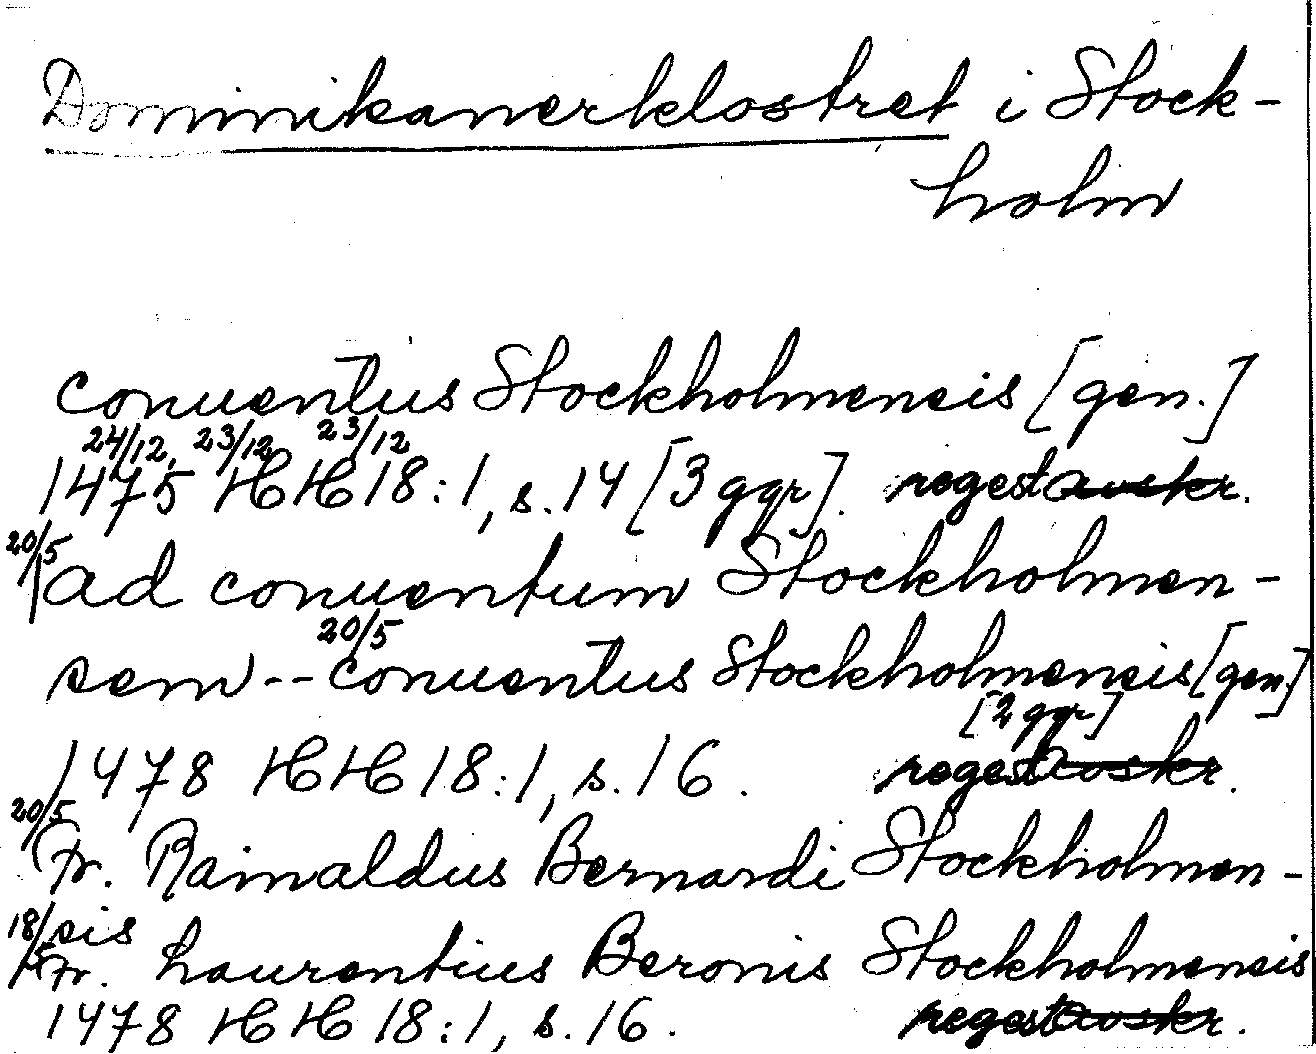 Dominikanerklostret i Stock-
holm
conuentus Stockholmensis [gen.]
24/12, 23/12 23/12
1475 HH 18:1, s. 14 [3 ggr]. regest avskr.
20/5
ad conuentum Stockholmen-
20/5
sem -- conuentus Stockholmensis [gen.]
[2 ggr]
1478 HH 18:1, s. 16. regest avskr.
20/5
Fr. Rainaldus Bernardi Stockholmen-
18/5 sis
Fr. Laurentius Beronis Stockholmensis
1478 HH 18:1, s. 16. regest avskr.